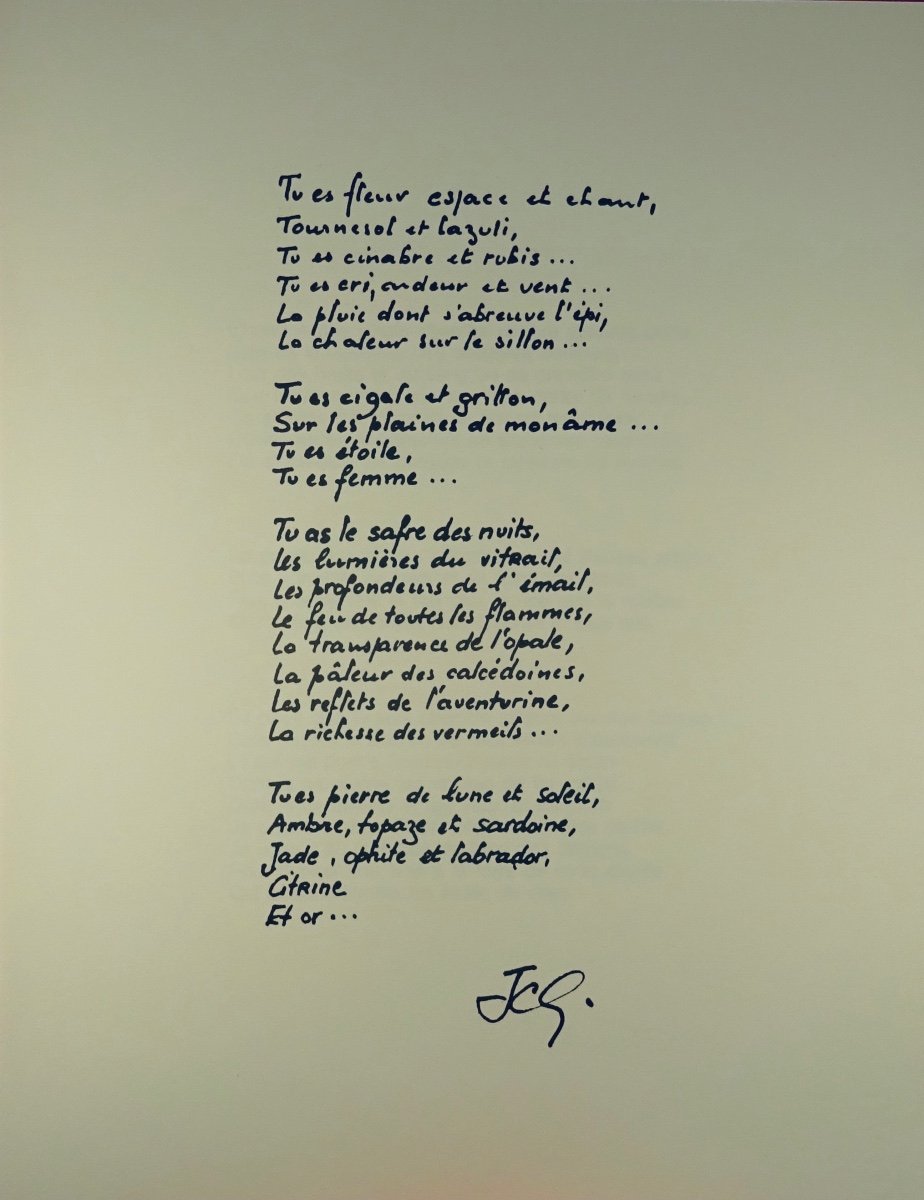 Tu es fleur espace et chant,
Tournesol et lazuli,
Tu es cinabre et rubis ...
Tu es cri, ondeur et vent ...
La pluie dont s'abreuve l'épi,
La chaleur sur le sillon ...
Tu es cigale et grillon,
Sur les plaines de mon âme ...
Tu es étoile,
Tu es femme ...
Tu as le safre des nuits,
Les lumières du vitrail,
Les profondeurs de l'émail,
Le feu de toutes les flammes,
La transparence de l'opale,
La pâleur des calcédoines,
Les reflets de l'aventurine,
La richesse des vermeils ...
Tu es pierre de lune et soleil,
Ambre, topaze et sardoine,
Jade, ophite et labrador,
Citrine
Et or ...
JCG.